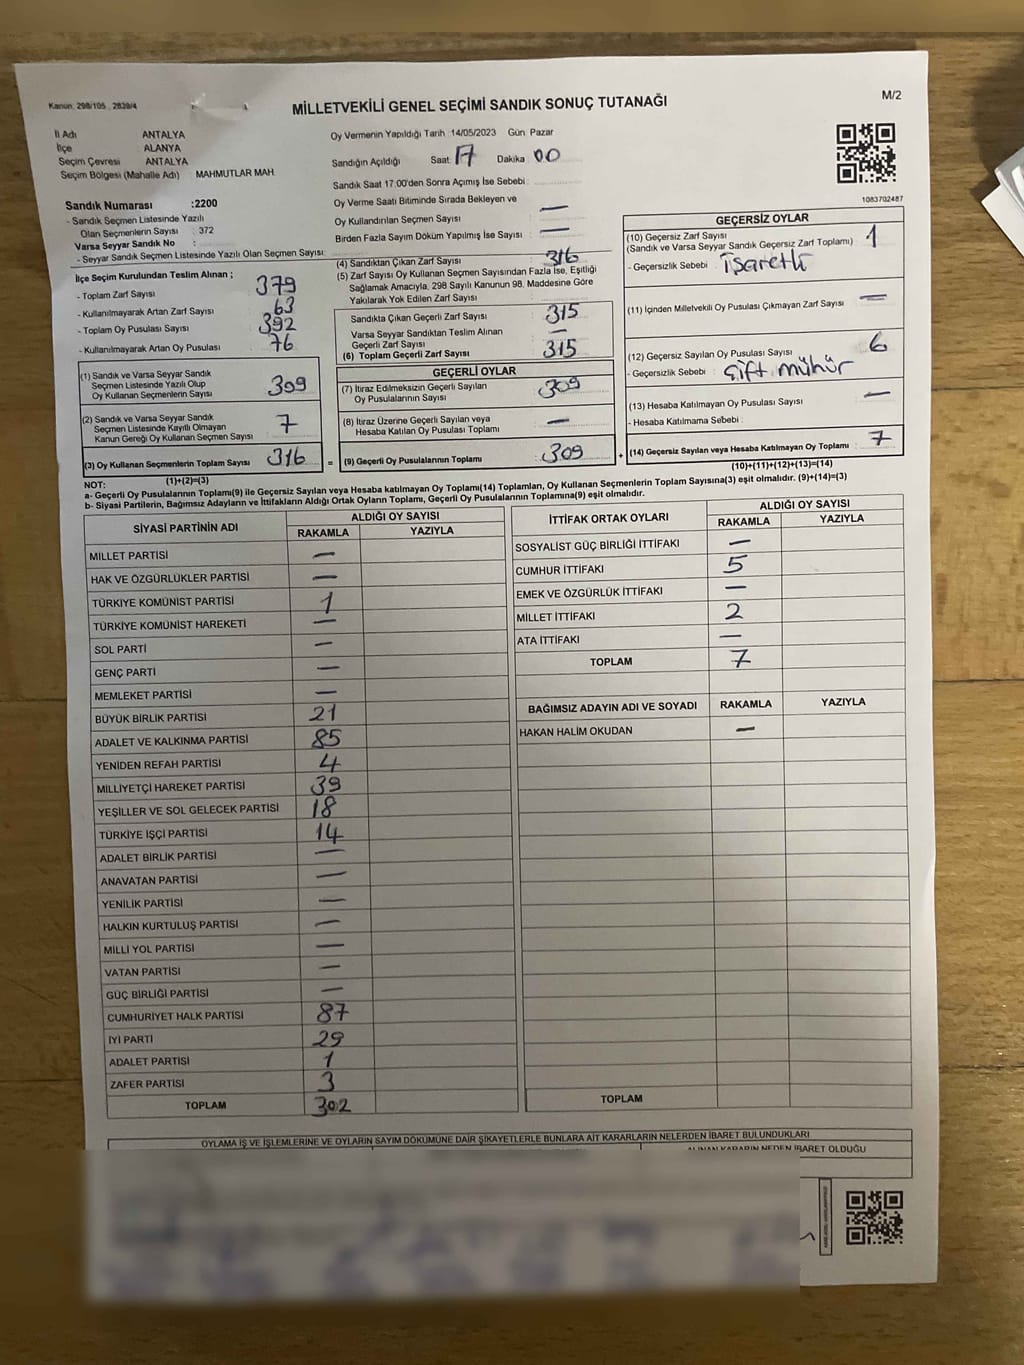 Kanun: 298/105 , 2839/4
MİLLETVEKİLİ GENEL SEÇİMİ SANDIK SONUÇ TUTANAĞI
M/2
İl Adı ANTALYA
İlçe ALANYA
Seçim Çevresi ANTALYA
Seçim Bölgesi (Mahalle Adı) MAHMUTLAR MAH.
Sandık Numarası :2200
- Sandık Seçmen Listesinde Yazılı
Olan Seçmenlerin Sayısı : 372
Varsa Seyyar Sandık No :
- Seyyar Sandık Seçmen Listesinde Yazılı Olan Seçmen Sayısı:
Oy Vermenin Yapıldığı Tarih :14/05/2023 Gün: Pazar
Sandığın Açıldığı Saat: 17 Dakika : 00
Sandık Saat 17:00'den Sonra Açımış İse Sebebi :
Oy Verme Saati Bitiminde Sırada Bekleyen ve
Oy Kullandırılan Seçmen Sayısı : —
Birden Fazla Sayım Döküm Yapılmış İse Sayısı : —
1083702487
İlçe Seçim Kurulundan Teslim Alınan ;
- Toplam Zarf Sayısı : 379
- Kullanılmayarak Artan Zarf Sayısı : 63
- Toplam Oy Pusulası Sayısı : 392
- Kullanılmayarak Artan Oy Pusulası : 76
(1) Sandık ve Varsa Seyyar Sandık
Seçmen Listesinde Yazılı Olup
Oy Kullanan Seçmenlerin Sayısı : 309
(2) Sandık ve Varsa Seyyar Sandık
Seçmen Listesinde Kayıtlı Olmayan
Kanun Gereği Oy Kullanan Seçmen Sayısı : 7
(3) Oy Kullanan Seçmenlerin Toplam Sayısı : 316
(1)+(2)=(3)
(4) Sandıktan Çıkan Zarf Sayısı : 316
(5) Zarf Sayısı Oy Kullanan Seçmen Sayısından Fazla İse, Eşitliği
Sağlamak Amacıyla, 298 Sayılı Kanunun 98. Maddesine Göre
Yakılarak Yok Edilen Zarf Sayısı :
Sandıkta Çıkan Geçerli Zarf Sayısı : 315
Varsa Seyyar Sandıktan Teslim Alınan
Geçerli Zarf Sayısı : —
(6) Toplam Geçerli Zarf Sayısı : 315
GEÇERLİ OYLAR
(7) İtiraz Edilmeksizin Geçerli Sayılan
Oy Pusulalarının Sayısı : 309
(8) İtiraz Üzerine Geçerli Sayılan veya
Hesaba Katılan Oy Pusulası Toplamı : —
= (9) Geçerli Oy Pusulalarının Toplamı : 309
GEÇERSİZ OYLAR
(10) Geçersiz Zarf Sayısı
(Sandık ve Varsa Seyyar Sandık Geçersiz Zarf Toplamı) : 1
- Geçersizlik Sebebi : İşaretli
(11) İçinden Milletvekili Oy Pusulası Çıkmayan Zarf Sayısı : —
(12) Geçersiz Sayılan Oy Pusulası Sayısı : 6
- Geçersizlik Sebebi : Çift mühür
(13) Hesaba Katılmayan Oy Pusulası Sayısı : —
- Hesaba Katılmama Sebebi :
+ (14) Geçersiz Sayılan veya Hesaba Katılmayan Oy Toplamı : 7
(10)+(11)+(12)+(13)=(14)
NOT:
a- Geçerli Oy Pusulalarının Toplamı(9) ile Geçersiz Sayılan veya Hesaba Katılmayan Oy Toplamı(14) Toplamları, Oy Kullanan Seçmenlerin Toplam Sayısına(3) eşit olmalıdır. (9)+(14)=(3)
b- Siyasi Partilerin, Bağımsız Adayların ve İttifakların Aldığı Ortak Oyların Toplamı, Geçerli Oy Pusulalarının Toplamına(9) eşit olmalıdır.
SİYASİ PARTİNİN ADI ALDIĞI OY SAYISI
RAKAMLA YAZIYLA
MİLLET PARTİSİ —
HAK VE ÖZGÜRLÜKLER PARTİSİ —
TÜRKİYE KOMÜNİST PARTİSİ 1
TÜRKİYE KOMÜNİST HAREKETİ —
SOL PARTİ —
GENÇ PARTİ —
MEMLEKET PARTİSİ —
BÜYÜK BİRLİK PARTİSİ 21
ADALET VE KALKINMA PARTİSİ 85
YENİDEN REFAH PARTİSİ 4
MİLLİYETÇİ HAREKET PARTİSİ 39
YEŞİLLER VE SOL GELECEK PARTİSİ 18
TÜRKİYE İŞÇİ PARTİSİ 14
ADALET BİRLİK PARTİSİ —
ANAVATAN PARTİSİ —
YENİLİK PARTİSİ —
HALKIN KURTULUŞ PARTİSİ —
MİLLİ YOL PARTİSİ —
VATAN PARTİSİ —
GÜÇ BİRLİĞİ PARTİSİ —
CUMHURİYET HALK PARTİSİ 87
İYİ PARTİ 29
ADALET PARTİSİ 1
ZAFER PARTİSİ 3
TOPLAM 302
İTTİFAK ORTAK OYLARI ALDIĞI OY SAYISI
RAKAMLA YAZIYLA
SOSYALİST GÜÇ BİRLİĞİ İTTİFAKI —
CUMHUR İTTİFAKI 5
EMEK VE ÖZGÜRLÜK İTTİFAKI —
MİLLET İTTİFAKI 2
ATA İTTİFAKI —
TOPLAM 7
BAĞIMSIZ ADAYIN ADI VE SOYADI RAKAMLA YAZIYLA
HAKAN HALİM OKUDAN —
TOPLAM
OYLAMA İŞ VE İŞLEMLERİNE VE OYLARIN SAYIM DÖKÜMÜNE DAİR ŞİKAYETLERLE BUNLARA AİT KARARLARIN NELERDEN İBARET BULUNDUKLARI
ALINAN KARARIN NEDEN İBARET OLDUĞU